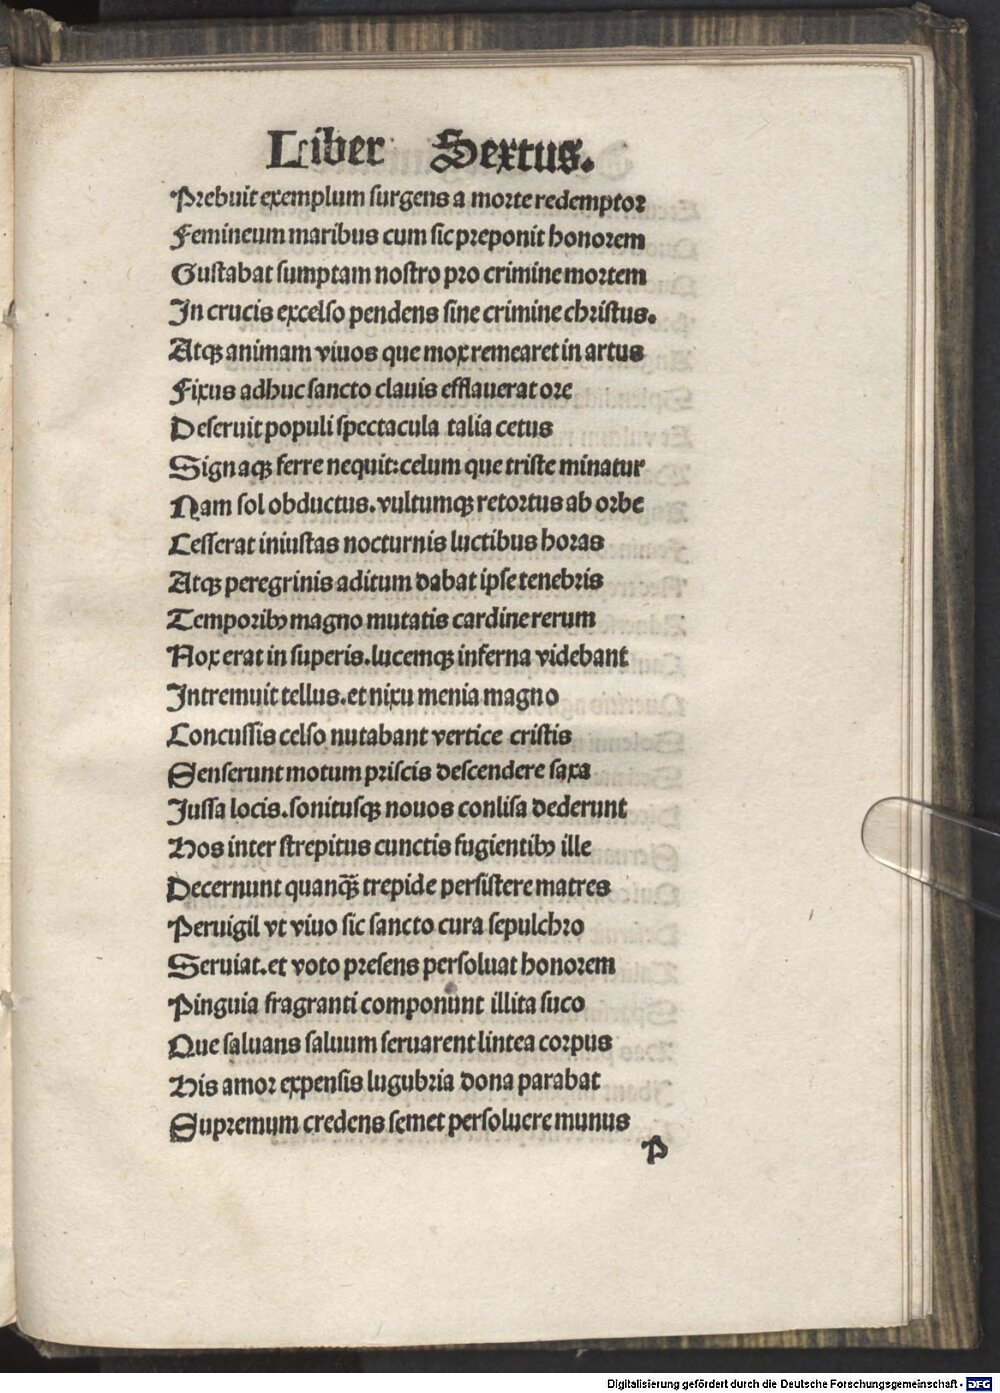 Liber Sextus.
Prebuit exemplum surgens a morte redemptor
Femineum maribus cum sic preponit honorem
Gustabat sumptam nostro pro crimine mortem
In crucis excelso pendens sine crimine christus.
Atqꝫ animam viuos que mox remearet in artus
Fixus adhuc sancto clauis efflauerat ore
Deseruit populi spectacula talia cetus
Signaqꝫ ferre nequit: celum que triste minatur
Nam sol obductus. vultumqꝫ retortus ab orbe
Cesserat iniustas nocturnis luctibus horas
Atqꝫ peregrinis aditum dabat ipse tenebris
Temporibꝰ magno mutatis cardine rerum
Nox erat in superis. lucemqꝫ inferna videbant
Intremuit tellus. et nixu menia magno
Concussis celso nutabant vertice cristis
Senserunt motum priscis descendere saxa
Jussa locis. sonitusqꝫ nouos conlisa dederunt
Hos inter strepitus cunctis fugientibꝰ ille
Decernunt quanqꝫ̄ trepide persistere matres
Peruigil vt viuo sic sancto cura sepulchro
Seruiat. et voto presens persoluat honorem
Pinguia fragranti componunt illita suco
Que saluans saluum seruarent lintea corpus
His amor expensis lugubria dona parabat
Supremum credens semet persoluere munus
P
Digitalisierung gefördert durch die Deutsche Forschungsgemeinschaft - DFG